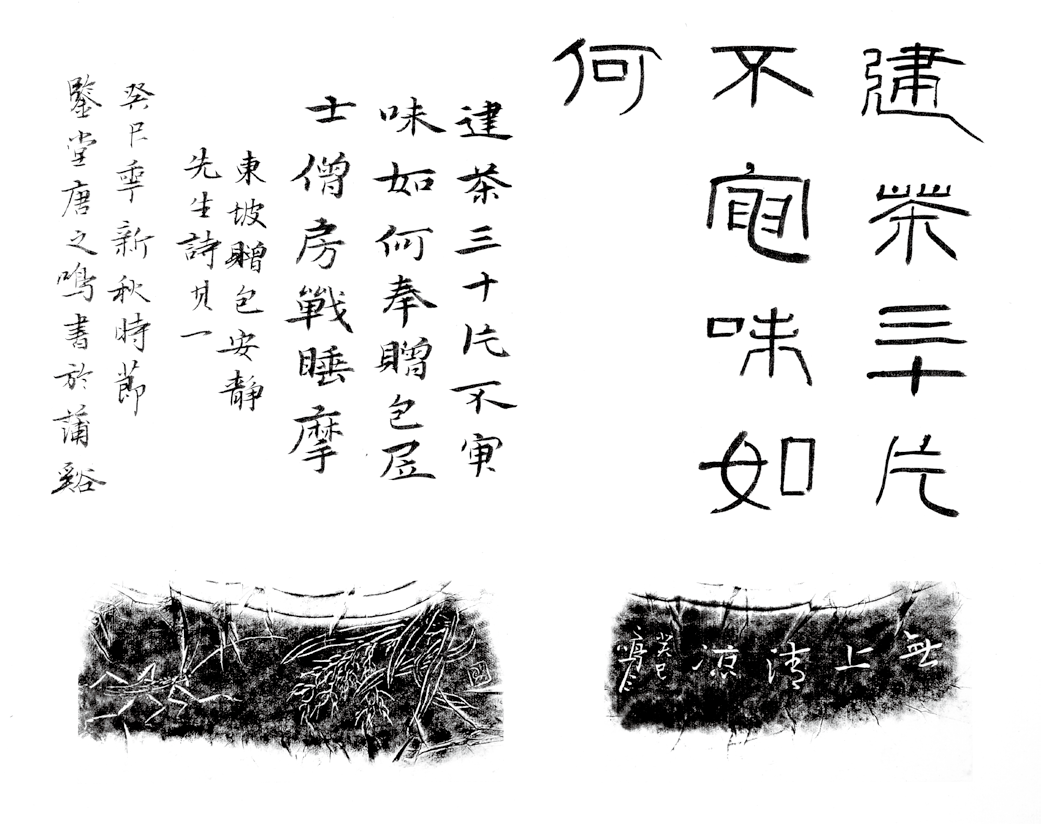 建茶三十片
不審味如
何
建茶三十片不審
味如何奉贈包居
士僧房戰睡摩
東坡贈包安靜
先生詩其一
癸巳季新秋時節
鑒堂唐之鳴書於蒲谿
無上清涼
癸巳
之鳴